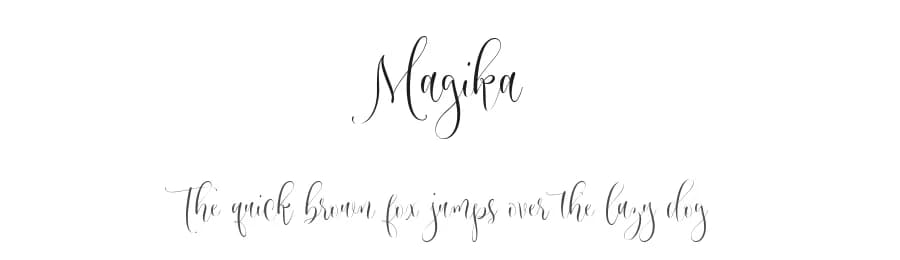 Magika
The quick brown fox jumps over the lazy dog